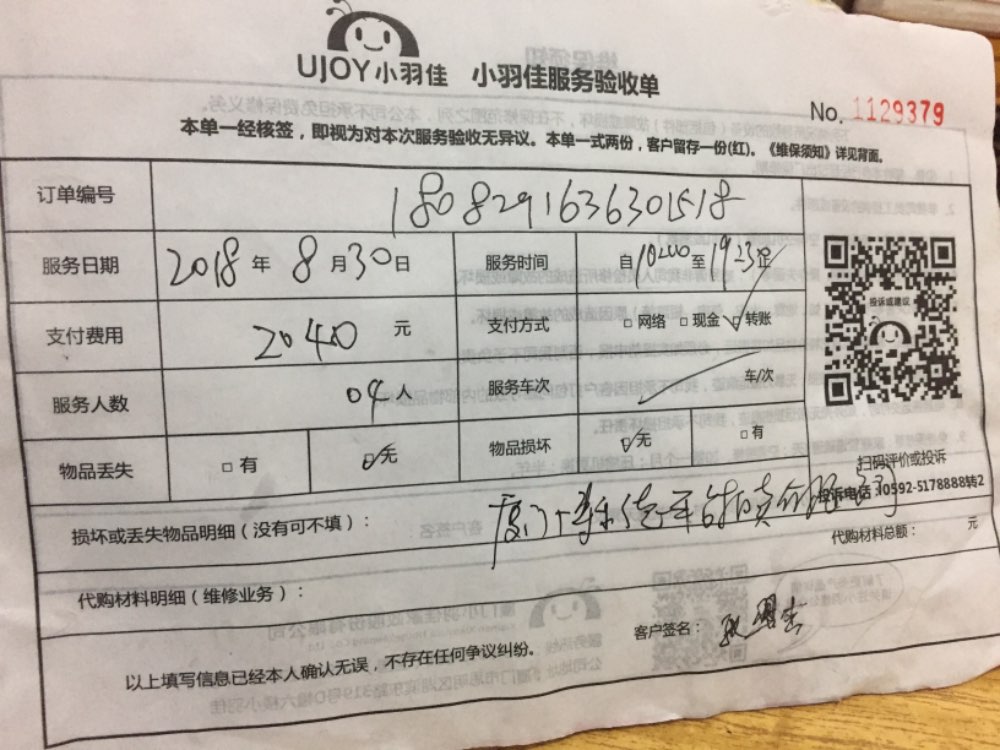 UJOY小羽佳 小羽佳服务验收单
No. 1129379
本单一经核签，即视为对本次服务验收无异议。本单一式两份，客户留存一份(红)。《维保须知》详见背面。
订单编号 1808291636301518
服务日期 2018 年 8 月 30 日 服务时间 自 10:00 至 19:30
支付费用 2040 元 支付方式 □ 网络 □ 现金 ✓ 转账
服务人数 04 人 服务车次 车/次
物品丢失 □ 有 ✓无 物品损坏 ✓无 □ 有
投诉或建议
扫码评价或投诉
投诉电话：0592-5178888转2
损坏或丢失物品明细（没有可不填）：
代购材料总额： 元
代购材料明细（维修业务）：
客户签名：
以上填写信息已经本人确认无误，不存在任何争议纠纷。